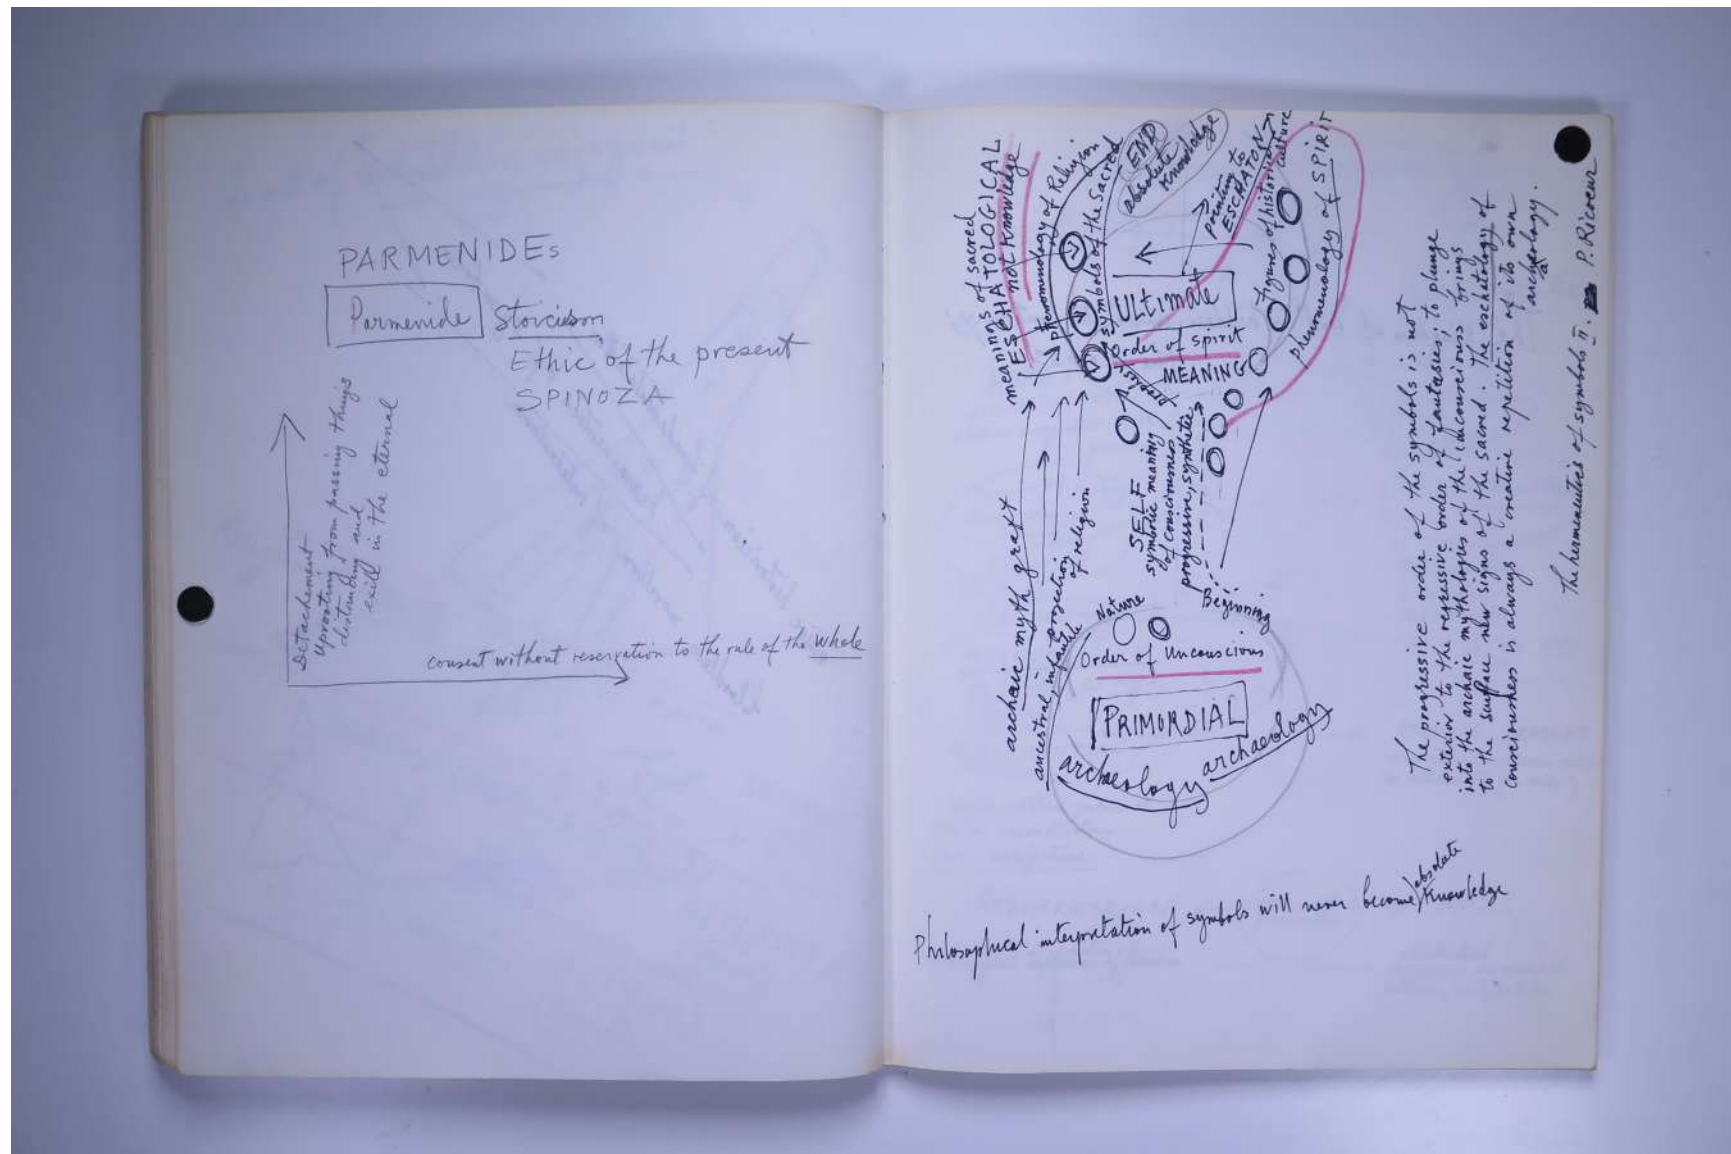 PARMENIDES
Parmenide Stoicism
Ethic of the present
SPINOZA
Detachement
Uprooting from passing things
distancing and
exile in the eternal
consent without reservation to the rule of the Whole
meanings of sacred
ESCHATOLOGICAL
not knowledge
phenomenology of Religion
symbols of the Sacred
END
absolute
knowledge
pointing to
ESCHATON
figures of historical culture
phenomenology of SPIRIT
ULtimate
Order of spirit
MEANING
SELF
symbolic meaning
of consciousness
progressive, synthetic
archaic myth graft
ancestral, infantile projection
of religion
Nature
Beginning
Order of Unconscious
PRIMORDIAL
archaeology archaeology
The progressive order of the symbols is not
exterior to the regressive order of fantasies; to plunge
into the archaic mythologies of the unconscious brings
to the surface new signs of the sacred. The eschatology of
consciousness is always a creative repetition of its own
archaeology.
The hermeneutics of symbols II. P. Ricoeur
Philosophical interpretation of symbols will never become absolute knowledge